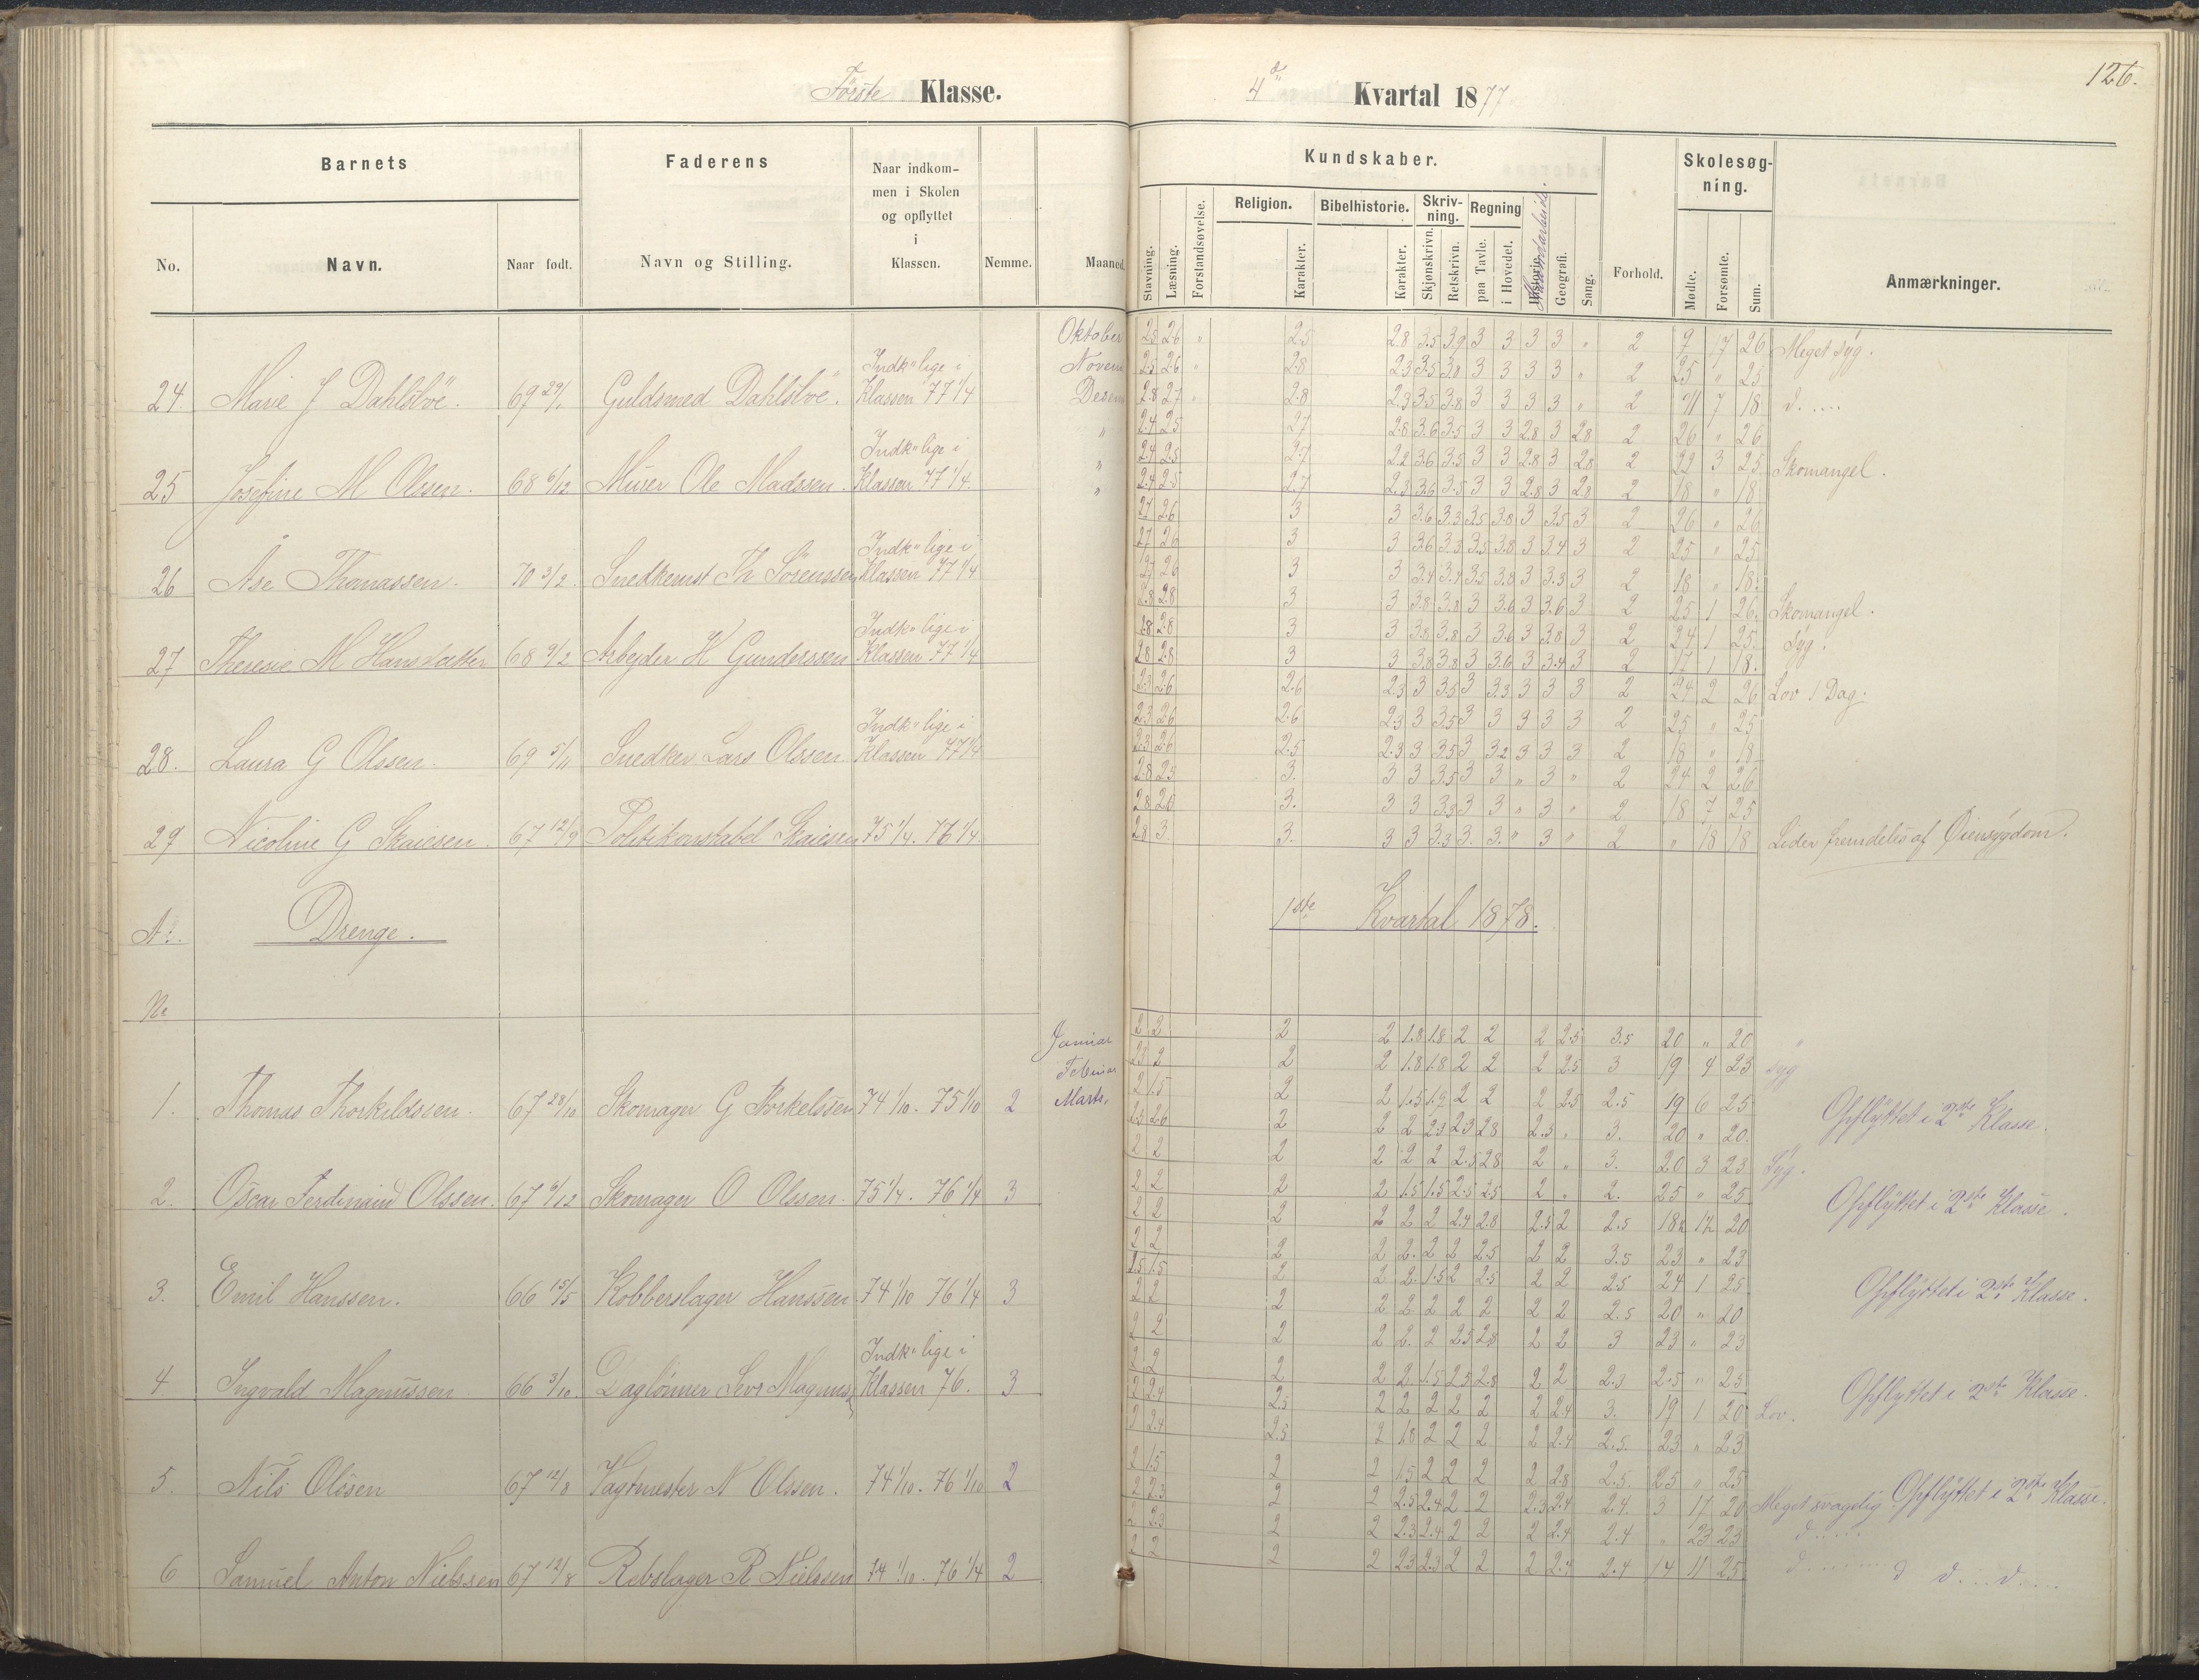 Første Klasse.
4de Kvartal 1877
126.
Barnets
Faderens
Naar indkom-
men i Skolen
og opflyttet
i
Klassen.
No. Navn. Naar født. Navn og Stilling. Nemme. Maaned.
Kundskaber.
Skolesøg-
ning.
Stavning. Læsning. Forstandsøvelse. Religion. Bibelhistorie. Skriv-
ning. Regning
Karakter. Karakter. Skjønskrivn. Retskrivn. paa Tavle. i Hovedet. Historie. Haandarbeide Geografi. Sang. Forhold. Mødte. Forsømte. Sum. Anmærkninger.
Oktober 2.5 2.6 " 2.5 2.8 3.5 3.9 3 3 3 3 " 2 9 17 26 Meget syg.
Novem 2.5 2.6 " 2.8 2.3 3.5 3.8 3 3 3 3 " 2 25 " 25
24. Marie J Dahlsloë. 69 29/1 Guldsmed Dahlsloë. Indk" lige i Klassen 77 1/4 Desem 2.8 2.7 " 2.8 2.3 3.5 3.8 3 3 3 3 " 2 11 7 18 d.....
" 2.4 2.5 2.7 2.8 3.6 3.5 3 3 2.8 3 2.8 2 26 " 26
" 2.4 2.5 2.7 2.2 3.6 3.5 3 3 2.8 3 2.8 2 22 3 25 Skomangel.
25 Josefine M Olssen. 68 6/12 Murer Ole Madssen. Indk" lige i Klassen 77 1/4. " 2.4 2.5 2.7 2.3 3.6 3.5 3 3 2.8 3 2.8 2 18 " 18
2.7 2.6 3 3 3.6 3.3 3.5 3.8 3 3.5 3 2 26 " 26
2.7 2.6 3 3 3.6 3.3 3.5 3.8 3 3.4 3 2 25 " 25
26 Åse Thomassen. 70 3/2 Snedkerm Th Sörenssen Indk" lige i Klassen 77 1/4 2.7 2.6 3 3 3.4 3.4 3.5 3.8 3 3.3 3 2 18 " 18.
2.8 2.8 3 3 3.8 3.8 3 3.6 3 3.6 3 2 25 1 26. Skomangel.
2.8 2.8 3 3 3.8 3.8 3 3.6 3 3.8 3 2 24 1 25. Syg.
27 Theresie M Hansdatter 68 9/2 Arbejder H Gunderssen Indk" lige i Klassen 77 1/4 2.8 2.8 3 3 3.8 3.8 3 3.6 3 3.4 3 2 17 1 18.
2.3 2.6 2.6 2.3 3 3.5 3 3.3 3 3 3 2 24 2 26 Lov 1 Dag.
2.3 2.6 2.6 2.3 3 3.5 3 3 3 3 3 2 25 " 25
28. Laura G Olssen. 69 5/11 Snedker Lars Olssen. Indk" lige i Klassen 77 1/4 2.3 2.6 2.5 2.3 3 3.5 3 3.2 3 3 3 2 18 " 18
2.8 2.5 3. 3 3 3.5 3 3 " 3 " 2 24 2 26
2.8 2.8 3. 3 3 3.5 3 3 " 3 " 2 18 7 25
29 Nicoline G Skaiesen. 67 12/9 Politikonstabel Skaiesen 75 1/4. 76 1/4 2.8 3. 3. 3 3 3.3 3. 3. " 3 " 2 " 18 18 Lider fremdeles af Öiensygdom.
A:. Drenge. 1ste Kvartal 1878.
No
Januar 2 2 2 2 1.8 1.8 2 2 2 2.5 3.5 20 " 20 "
Februar 2.3 2 2 2 1.8 1.8 2 2 2 2.5 3 19 4 23 Syg
1. Thomas Thorkildssen. 67 28/10 Skomager G Torkelssen 74 1/10. 75 1/10 2 Marts. 2 1.5 2 2 1.5 1.9 2 2 2 2.5 2.5 19 6 25 Opflyttet i 2den Klasse.
2.3 2.6 2 2 2 2.3 2.3 2.8 2.3 " 3. 20 " 20. "
2 2 2 2 2 2 2.5 2.8 2 " 3. 20 3 23 Syg.
2. Oscar Ferdinand Olssen. 67 6/12 Skomager O Olssen. 75 1/4. 76 1/4 3 2 2 2 2 1.5 1.5 2.5 2.5 2 " 2. 25 " 25 Opflyttet i 2den Klasse.
2 2 2 2 2 2 2.4 2.8 2.5 2 2.5 18½ 1½ 20
2 2 2 2 2. 2 2 2.5 2 2 3.5 23 " 23
3. Emil Hanssen. 66 15/5 Kobberslager Hanssen 74 1/10 76 1/4 3 2.5 1.5 2 2 2. 1.5 2 2.5 2 2 2.5 24 1 25 Opflyttet i 2den Klasse.
2 2 2 2 2 2 2 2 2 2 2.5 20 " 20
2 2 2 2 2. 2 2.5 2.8 2 2 3 23 " 23
4. Ingvald Magnussen 66 3/10. Daglönner Sevr Magnus Indk" lige i Klassen 76. 3 2 2 2 2 2 1.5 2.5 2.8 2 2 2.3 2.5 " 25 Opflyttet i 2den Klasse.
2 2.4 2.5 2 2 2 2 2 2 2.4 3. 19 1 20 Lov.
2 2.4 2.5 2 1.8 2 2 2 2 2.4 2.5. 23 " 23
5. Nils Olssen 67 12/8 Vagtmester N Olssen. 74 1/10. 76 1/10 2 2 1.5 2 2 1.5 2 2 2 2 2.8 2.5. 25 " 25
2 2.3 2 2 2.5 2.4 2 2 2.3 2.4 2.4. 3 17 20 Meget svagelig. Opflyttet i 2den Klasse.
2 2.3 2 2 2.3 2.4 2 2 2 2.4 2.4 " 23 23 d.....
6 Samuel Anton Nielssen 67 12/8 Rebslager R Nielssen 74 1/10. 76 1/4 2 2 2 2 2 2.3 2.3 2 2 2 2.4 2.4 14 11 25 d....... d d...d....